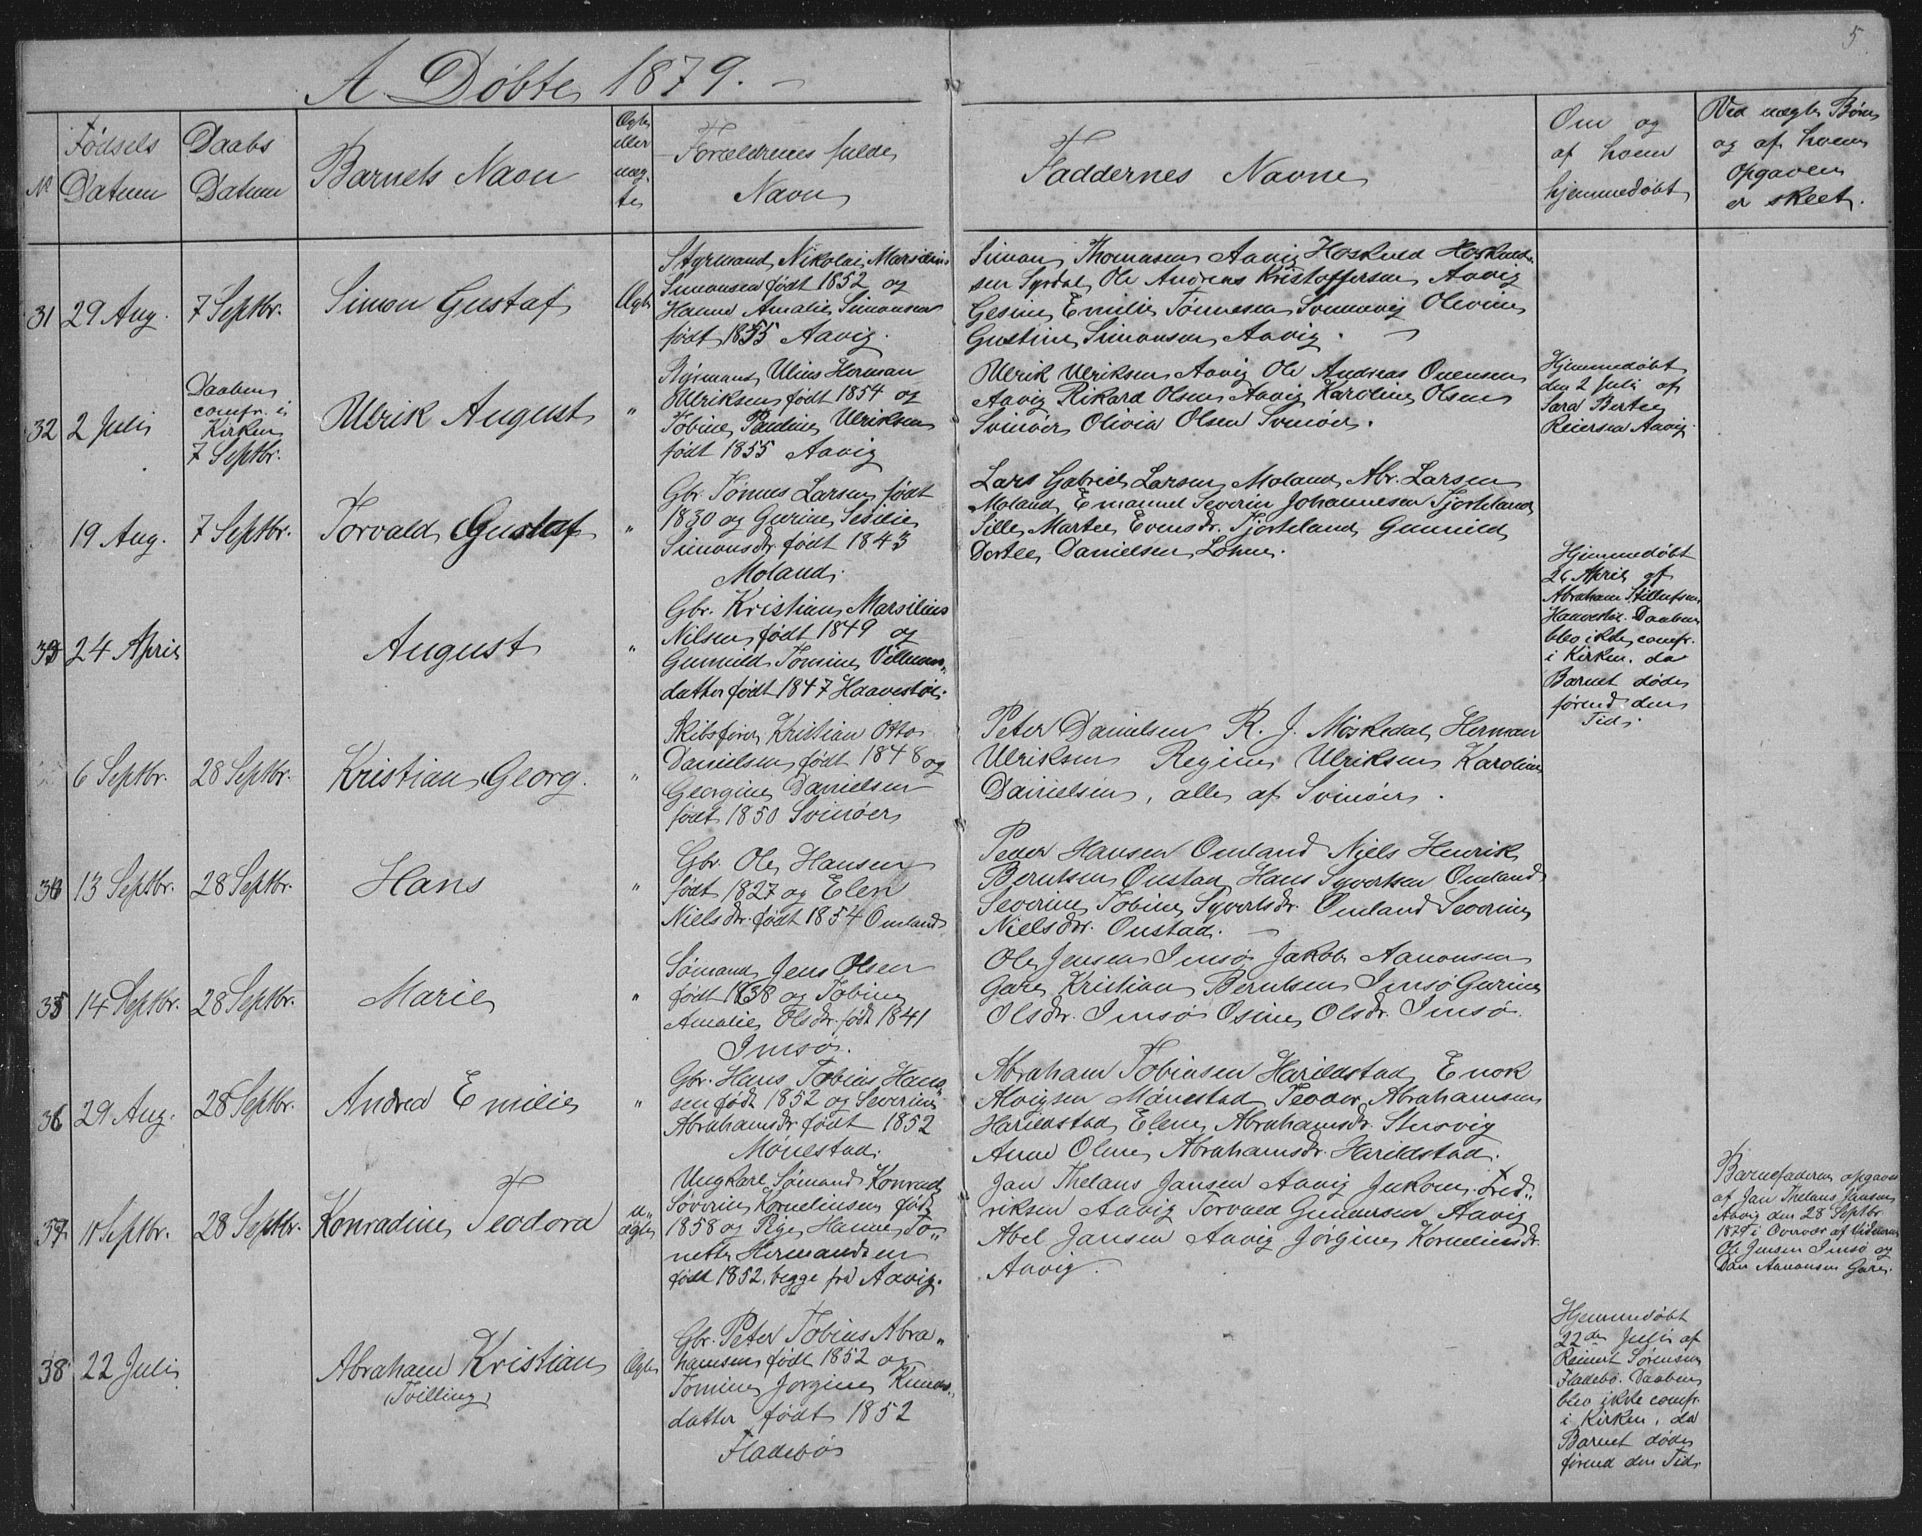 5
A. Døbte 1879.
No
Fødsels
Datum
Daabs
Datum
Barnets Navn
Ægte
eller
uæg-
te
Forældrenes fulde
Navn
Faddernes Navne
Om og
af hvem
hjemmedøbt
Ved uægte Børn
og af hvem
Opgaven
er skeet.
31 29 Aug. 7 Septbr. Simon Gustaf Ægte
Styrmand Nikolai Marsilius
Simonsen født 1852 og
Hanne Amalie Simonsen
født 1855 Aavig.
Simon Thomasen Aavig Hoskuld Hoskuld-
sen Syrdal Ole Andreas Kristoffersen Aavig
Gesine Emilie Tønnesen Svennevig Olevine
Gustine Simonsen Aavig.
32 2 Juli
Daaben
comfr. i
Kirken
7 Septbr.
Ulrik August "
Ulius Herman
Ulriksen født 1854 og
Tobine Pauline Ulriksen
født 1855 Aavig
Ulrik Ulriksen Aavig Ole Andreas Ouensen
Aavig Rikard Olsen Aavig Karoline Olsen
Svinøer Olivia Olsen Svinøer.
Hjemmedøbt
den 2 Juli af
Sara Bertee
Reiersen Aavig
19 Aug. 7 Septbr. Torvald Gustaf "
Gbr. Tønnes Larsen født
1830 og Gurine Sesilie
Simonsdr. født 1843
Moland.
Lars Gabriel Larsen Moland Abr. Larsen
Moland Emanuel Severin Johannesen Tjorteland
Sille Martee Evensdr. Tjorteland Gunnild
Dortee Danielsen Lohne.
33 24 April August "
Gbr. Kristian Marsilius
Nilsen født 1849 og
Gunnild Tomine Villums-
datter født 1847 Haavestøl.
Hjemmedøbt
26 April af
Abraham Stillufsen
Haavestøl. Daaben
blev ikke comfr.
i Kirken, da
Barnet døde
førend den
Tid.
6 Septbr. 28 Septbr. Kristian Georg. "
Skibsfører Kristian Otto
Danielsen født 1848 og
Georgine Danielsen
født 1850 Svinøer
Peter Danielsen R. J. Møskedal Herman
Ulriksen Regine Ulriksen Karoline
Danielsen, alle af Svinøer.
13 Septbr. 28 Septbr. Hans "
Gbr. Ole Hansen
født 1827 og Elen
Nielsdr. født 1854 Omland
Peder Hansen Omland Niels Henrik
Berntsen Ønstad Hans Syvertsen Omland
Severine Tobine Syvertsdr. Omland Severine
Nielsdr. Ønstad.
35 14 Septbr. 28 Septbr. Marie "
Sømand Jens Olsen
født 1838 og Tobine
Amalie Olsdr. født 1841
Imsø.
Ole Jensen Imsø Jakob Aanonsen
Gare Kristian Berntsen Imsø Gurine
Olsdr. Imsø Osine Olsdr. Imsø.
36 29 Aug. 28 Septbr. Andrea Emilie "
Gbr. Hans Tobias Han-
sen født 1852 og Severine
Abrahamsdr. født 1852
Mønestad.
Abraham Tobiasen Harildstad Enok
Alvigsen Mønestad Teodor Abrahamsen
Harildstad Elene Abrahamsdr. Stusvig
Anne Oline Abrahamsdr. Harildstad.
37 11 Septbr. 28 Septbr. Konradine Teodora
u-
ægte
Ungkarl Sømand Konrad
Søverin Kornelinsen født
1858 og Pige Hanne To-
nette Hermandsen
født 1852. begge fra Aavig.
Jan Thelans Jansen Aavig Jakom. Fred-
riksen Aavig Torvald Gundersen Aavig
Abel Jansen Aavig Jørgine Korneliusdr.
Aavig.
Barnefaderen opgaves
af Jan Thelans Jansen
Aavig den 28 Septbr.
1879 i Overvær af Vidnerne
Ole Jensen Imsø og
Dan Aanonsen Gare.
38 22 Juli
Abraham Kristian
(Tvilling)
Ægte
Gbr. Peter Tobias Abra-
hamsen født 1852 og
Tomine Jorgine Knuds-
datter født 1852
Fladebø
Hjemmedøbt
22de Juli af
Reinert Sørensen
Fladebø. Daaben
blev ikke comfr.
i Kirken, da
Barnet døde
førend den Tid.